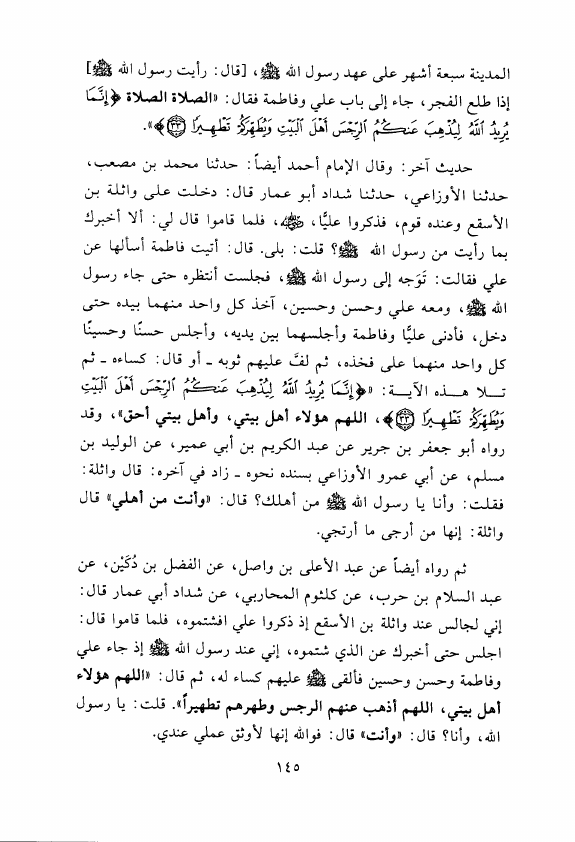 المدينة سبعة أشهر على عهد رسول الله ﷺ، [قال: رأيت رسول الله ﷺ]
إذا طلع الفجر، جاء إلى باب علي وفاطمة فقال: «الصلاة الصلاة ﴿إِنَّمَا
يُرِيدُ اللَّهُ لِيُذْهِبَ عَنكُمُ الرِّجْسَ أَهْلَ الْبَيْتِ وَيُطَهِّرَكُمْ تَطْهِيرًا ۝٣٣﴾».
حديث آخر: وقال الإمام أحمد أيضاً: حدثنا محمد بن مصعب،
حدثنا الأوزاعي، حدثنا شداد أبو عمار قال: دخلت على واثلة بن
الأسقع وعنده قوم، فذكروا عليًّا، رضي الله عنه، فلما قاموا قال لي: ألا أخبرك
بما رأيت من رسول الله ﷺ؟ قلت: بلى. قال: أتيت فاطمة أسألها عن
علي فقالت: تَوَجه إلى رسول الله ﷺ، فجلست أنتظره حتى جاء رسول
الله ﷺ، ومعه علي وحسن وحسين، آخذ كل واحد منهما بيده حتى
دخل، فأدنى عليًّا وفاطمة وأجلسهما بين يديه، وأجلس حسنًا وحسينًا
كل واحد منهما على فخذه، ثم لفَّ عليهم ثوبه ـ أو قال: كساءه ـ ثم
تلا هذه الآية: «﴿إِنَّمَا يُرِيدُ اللَّهُ لِيُذْهِبَ عَنكُمُ الرِّجْسَ أَهْلَ الْبَيْتِ
وَيُطَهِّرَكُمْ تَطْهِيرًا ۝٣٣﴾، اللهم هؤلاء أهل بيتي، وأهل بيتي أحق»، وقد
رواه أبو جعفر بن جرير عن عبد الكريم بن أبي عمير، عن الوليد بن
مسلم، عن أبي عمرو الأوزاعي بسنده نحوه ـ زاد في آخره: قال واثلة:
فقلت: وأنا يا رسول الله ﷺ من أهلك؟ قال: «وأنت من أهلي» قال
واثلة: إنها من أرجى ما أرتجي.
ثم رواه أيضاً عن عبد الأعلى بن واصل، عن الفضل بن دُكَيْن، عن
عبد السلام بن حرب، عن كلثوم المحاربي، عن شداد أبي عمار قال:
إني لجالس عند واثلة بن الأسقع إذ ذكروا علي افشتموه، فلما قاموا قال:
اجلس حتى أخبرك عن الذي شتموه، إني عند رسول الله ﷺ إذ جاء علي
وفاطمة وحسن وحسين فألقى ﷺ عليهم كساء له، ثم قال: «اللهم هؤلاء
أهل بيتي، اللهم أذهب عنهم الرجس وطهرهم تطهيراً». قلت: يا رسول
الله، وأنا؟ قال: «وأنت» قال: فوالله إنها لأوثق عملي عندي.
١٤٥